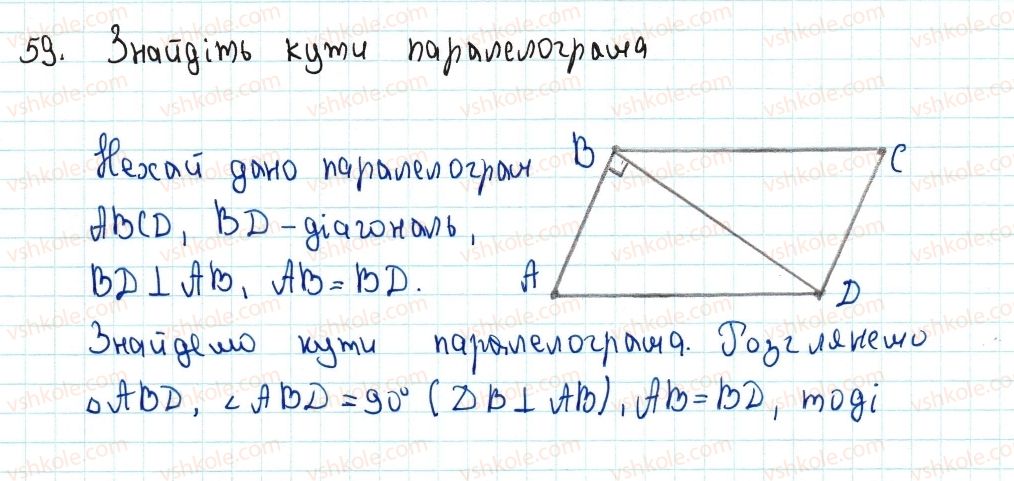 59. Знайдіть кути паралелограма
Нехай дано паралелограм
ABCD, BD - діагональ,
BD ⊥ AB, AB = BD.
Знайдемо кути паралелограма. Розглянемо
△ABD, ∠ABD = 90° (DB ⊥ AB), AB = BD, тоді
B
C
A
D
vshkole.com